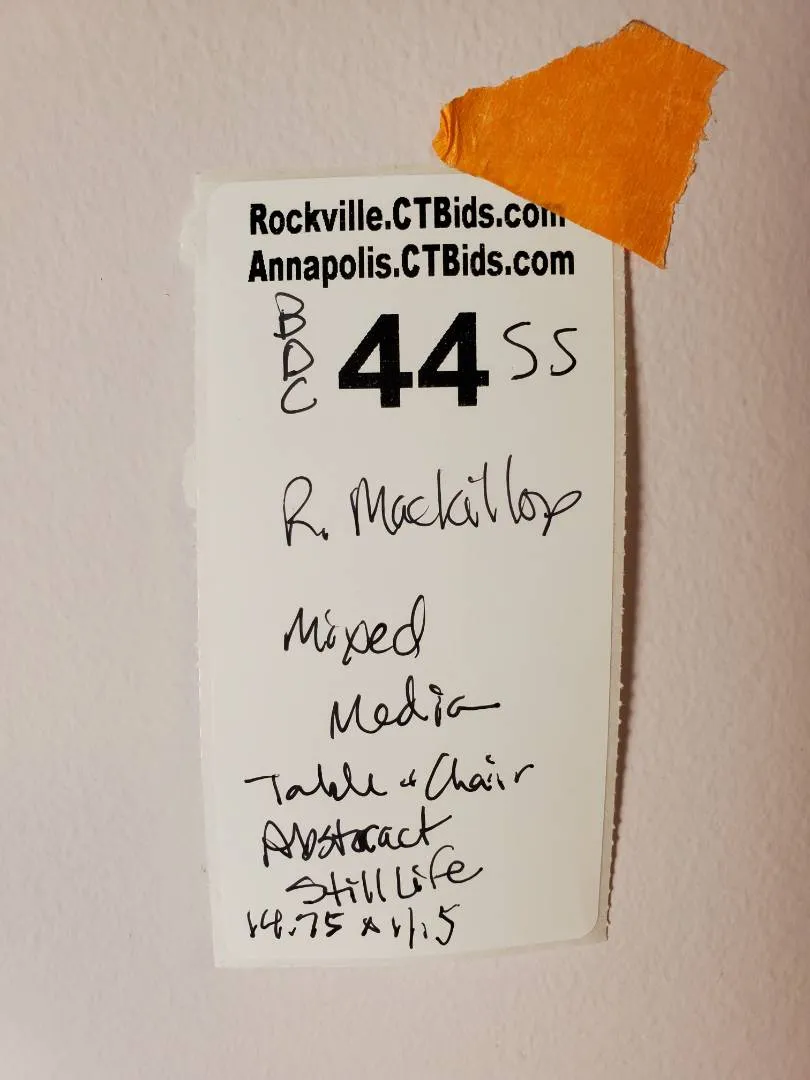 Rockville.CTBids.com
Annapolis.CTBids.com
B
D
C
44 SS
R. Mackillop
Mixed
Media
Table & Chair
Abstract
Still Life
14.75 x 11.5